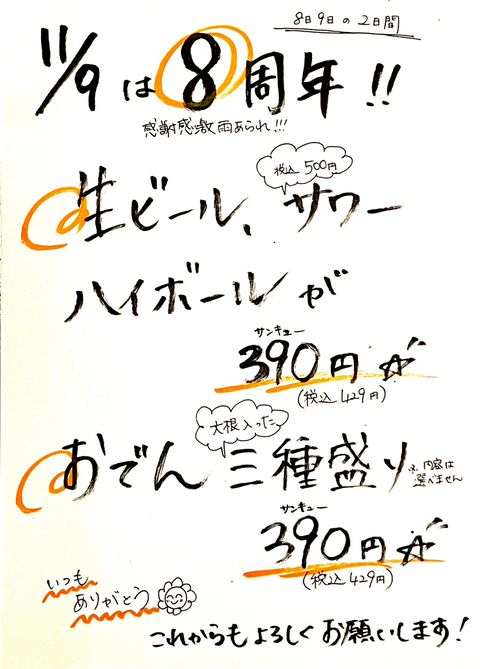 8日9日の2日間
11/9は8周年!!
感謝感激雨あられ!!!
税込500円
生ビール、サワー
ハイボールが
サンキュー
390円☆
(税込429円)
大根入った
おでん三種盛り
※内容は
選べません
サンキュー
390円☆
(税込429円)
いつも
ありがとう
これからもよろしくお願いします!